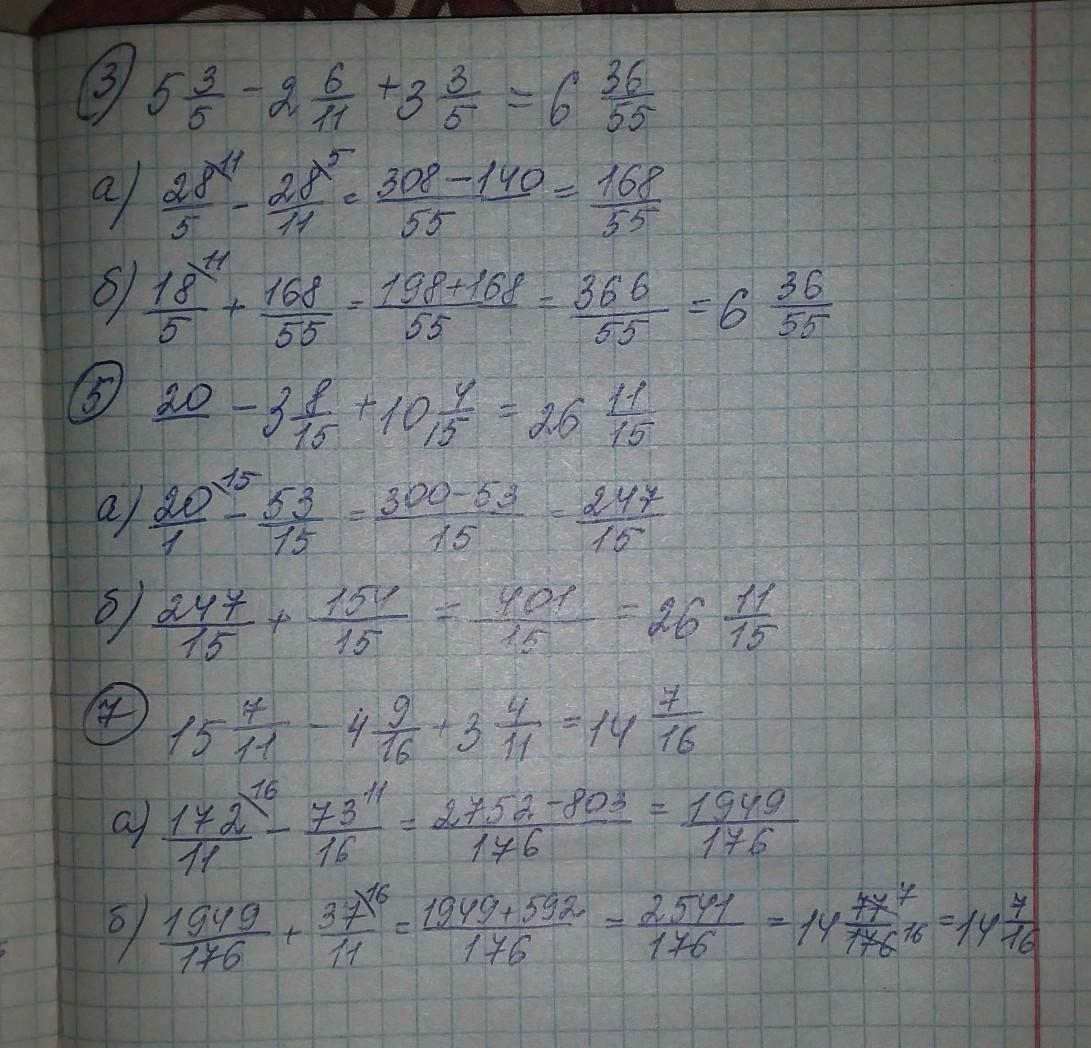 ③ 5 3/5 - 2 6/11 + 3 3/5 = 6 36/55
а) 28\11/5 - 28\5/11 = 308-140/55 = 168/55
б) 18\11/5 + 168/55 = 198+168/55 = 366/55 = 6 36/55
⑤ 20 - 3 8/15 + 10 4/15 = 26 11/15
а) 20\15/1 - 53/15 = 300-53/15 = 247/15
б) 247/15 + 154/15 = 401/15 = 26 11/15
⑦ 15 7/11 - 4 9/16 + 3 4/11 = 14 7/16
а) 172\16/11 - 73 11/16 = 2752-803/176 = 1949/176
б) 1949/176 + 37\16/11 = 1949+592/176 = 2541/176 = 14 77 7/176 16 = 14 7/16